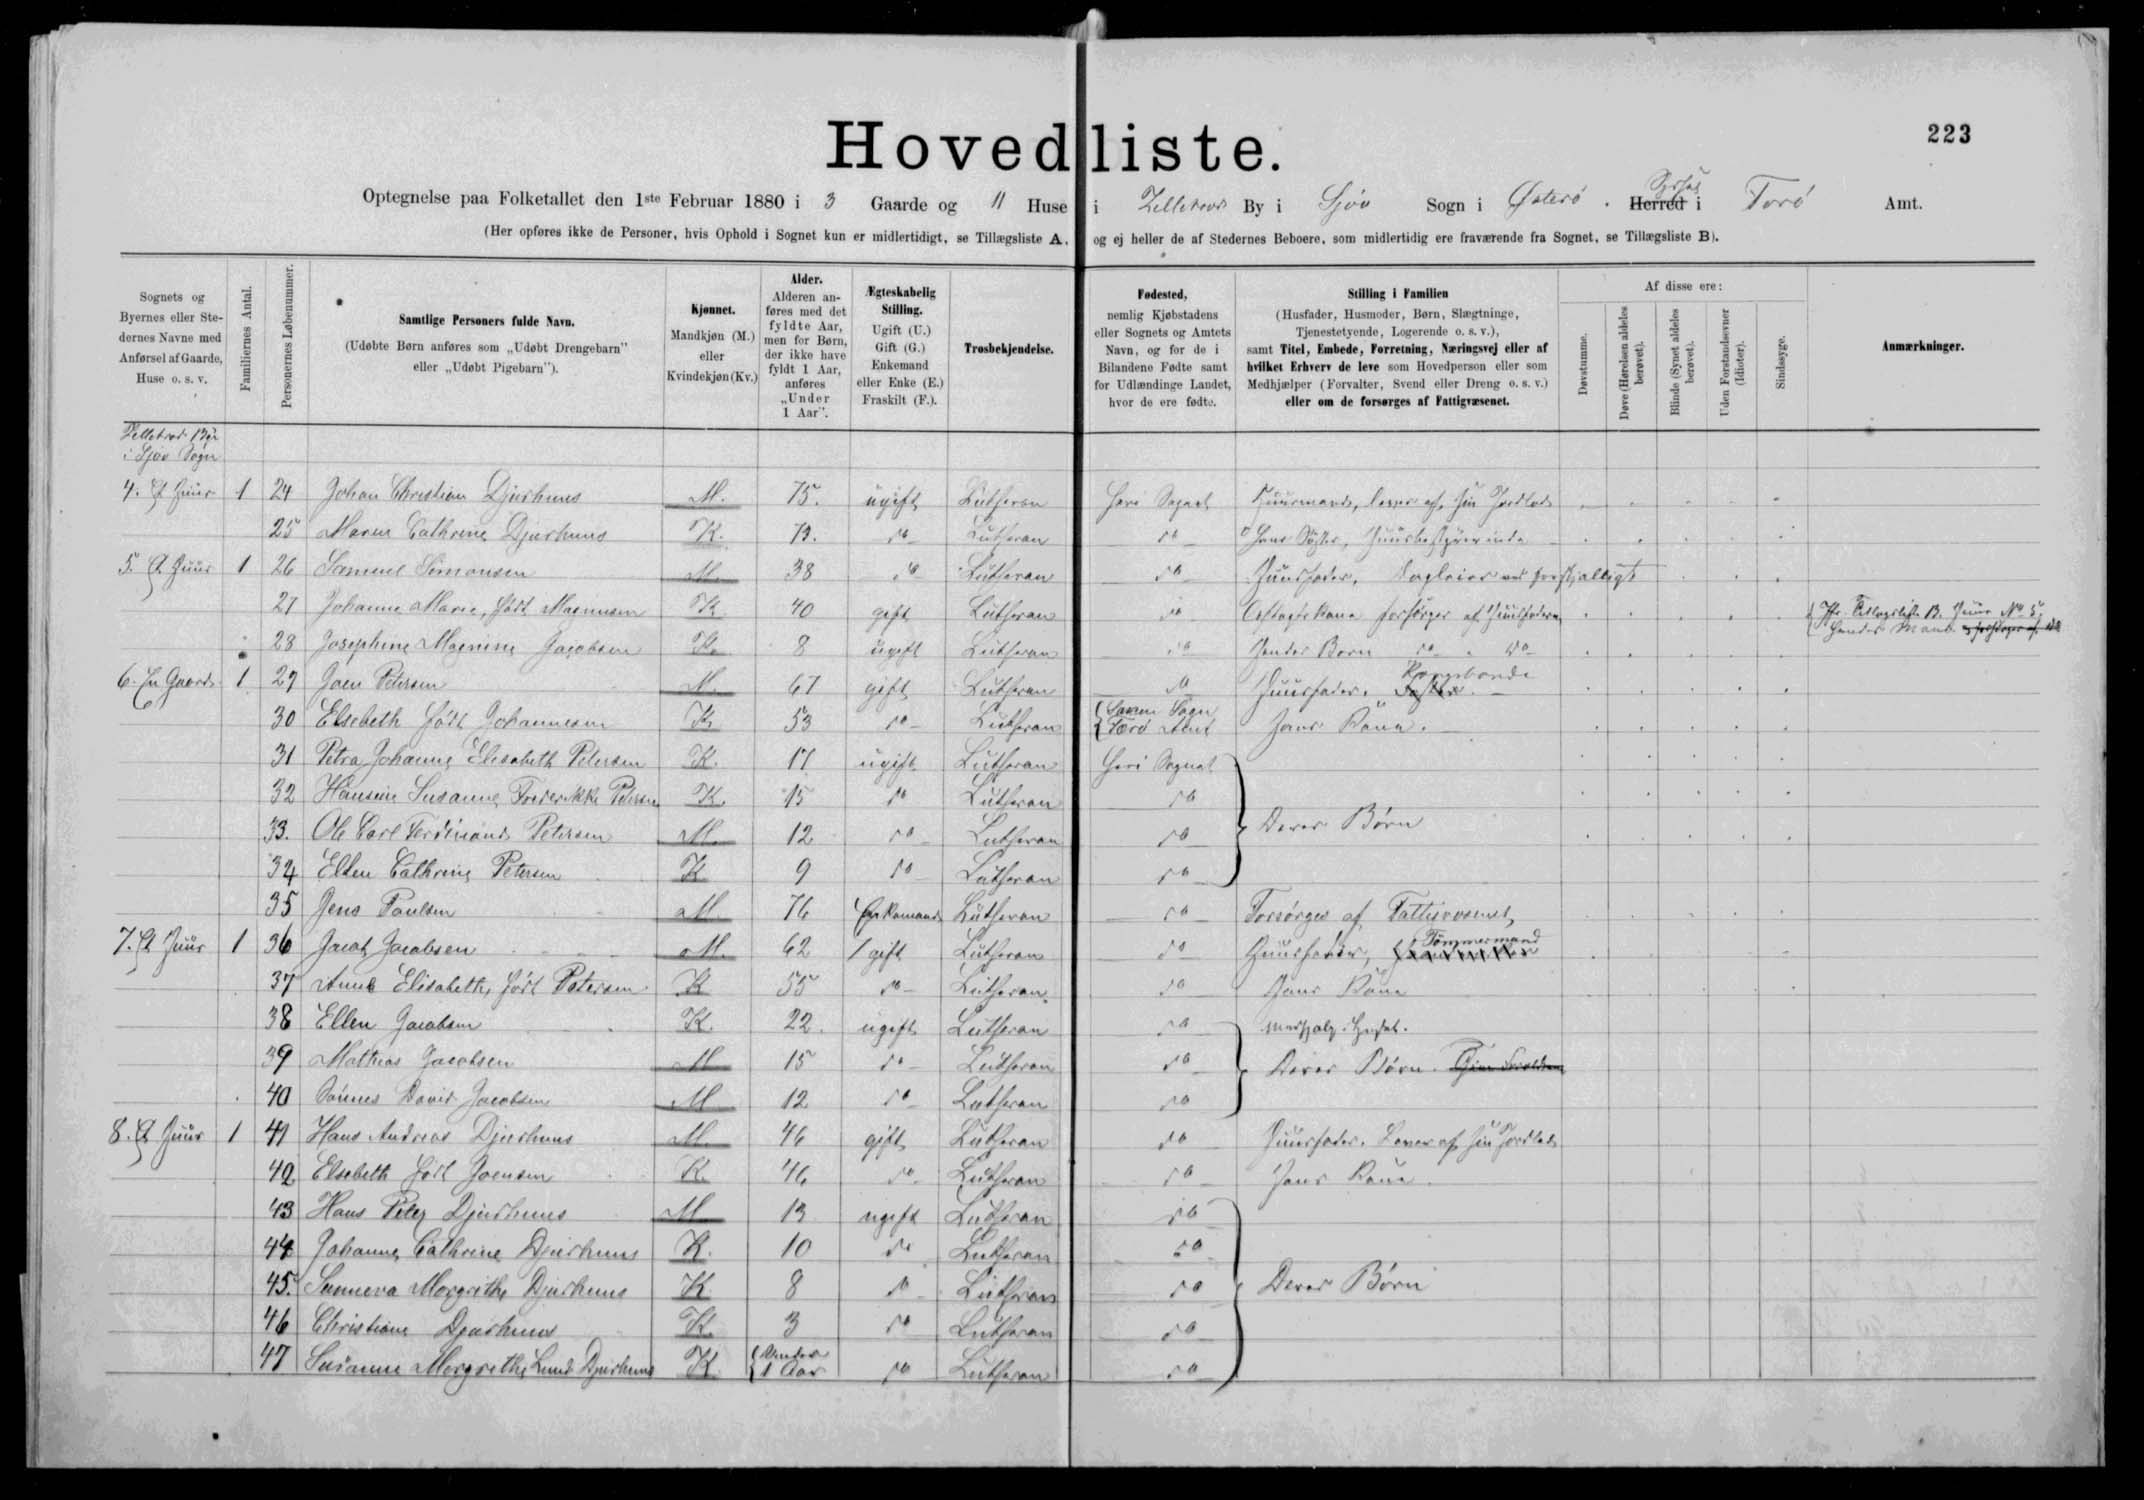 Hovedliste.
223
Optegnelse paa Folketallet den 1ste Februar 1880 i 3 Gaarde og 11 Huse i Zelletrod By i Sjov Sogn i Østerø Syssel Herred i Færø Amt.
(Her opføres ikke de Personer, hvis Ophold i Sognet kun er midlertidigt, se Tillægsliste A, og ej heller de af Stedernes Beboere, som midlertidig ere fraværende fra Sognet, se Tillægsliste B).
Sognets og Byernes eller Stedernes Navne med Anførsel af Gaarde, Huse o. s. v.
Familiernes Antal.
Personernes Løbenummer.
Samtlige Personers fulde Navn.
(Udøbte Børn anføres som „Udøbt Drengebarn" eller „Udøbt Pigebarn").
Kjønnet.
Mandkjøn (M.) eller Kvindekjøn (Kv.)
Alder.
Alderen anføres med det fyldte Aar, men for Børn, der ikke have fyldt 1 Aar, anføres „Under 1 Aar".
Ægteskabelig Stilling.
Ugift (U.) Gift (G.) Enkemand eller Enke (E.) Fraskilt (F.).
Trosbekjendelse.
Fødested,
nemlig Kjøbstadens eller Sognets og Amtets Navn, og for de i Bilandene Fødte samt for Udlændinge Landet, hvor de ere fødte.
Stilling i Familien
(Husfader, Husmoder, Børn, Slægtninge, Tjenestetyende, Logerende o. s. v.),
samt Titel, Embede, Forretning, Næringsvej eller af hvilket Erhverv de leve som Hovedperson eller som Medhjælper (Forvalter, Svend eller Dreng o. s. v.) eller om de forsørges af Fattigvæsenet.
Af disse ere:
Døvstumme.
Døve (Hørelsen aldeles berøvet).
Blinde (Synet aldeles berøvet).
Uden Forstandsevner (Idioter).
Sindssyge.
Anmærkninger.
i Sjov Sogn
4. Et Huus 1 24 Johan Christian Djurhuus M. 75. ugift Lutheran Heri Sognet Huusmand, lever af sin Jordlod
25 Maren Cathrine Djurhuus K. 73. do Lutheran do Hans Søster, Huusbestyrerinde
5. Et Huus 1 26 Samuel Simonsen M. 38 do Lutheran do Huusfader,
27 Johanne Marie, født Magnusen K 40 gift Lutheran do forsørges af Huusfaderen
28 Josephine Magnine Jacobsen K. 8 ugift Lutheran do Hendes Barn do do
6. En Gaard 1 29 Joen Petersen M 67 gift Lutheran do Huusfader. Kongsbonde
30 Elsebeth født Johannesen K. 53 do Lutheran Sogn Færø Amt Hans Kone.
31 Petra Johanne Elisabeth Petersen K. 17 ugift Lutheran Heri Sognet
32 Hansine Susanne Frederikke Petersen K. 15 do Lutheran do
33. Ole Carl Ferdinand Petersen M. 12 do Lutheran do Deres Børn
34 Ellen Cathrine Petersen K 9 do Lutheran do
35 Jens Poulsen M. 76 Enkemand Lutheran do Forsørges af Fattigvæsenet,
7. Et Huus 1 36 Jacob Jacobsen M. 62 gift Lutheran do Huusfader, Tømmermand
37 Anne Elisabeth, født Petersen K 55 do Lutheran do Hans Kone
38 Ellen Jacobsen K. 22. ugift Lutheran do
39 Mathias Jacobsen M 15 do Lutheran do Deres Børn.
40 David Jacobsen M 12 do Lutheran do
8. Et Huus 1 41 Hans Andreas Djurhuus M. 46 gift Lutheran do Huusfader. Lever af sin Jordlod
42 Elsebeth født Joensen K. 46 do Lutheran do Hans Kone
43 Hans Peter Djurhuus M 13 ugift Lutheran do
44 Johanne Cathrine Djurhuus K. 10 do Lutheran do
45. Sunneva Morgrethe Djurhuus K 8 do Lutheran do Deres Børn
46 Christiane Djurhuus K. 3 do Lutheran do
47 Susanne Morgrethe Lund Djurhuus K Under 1 Aar do Lutheran do